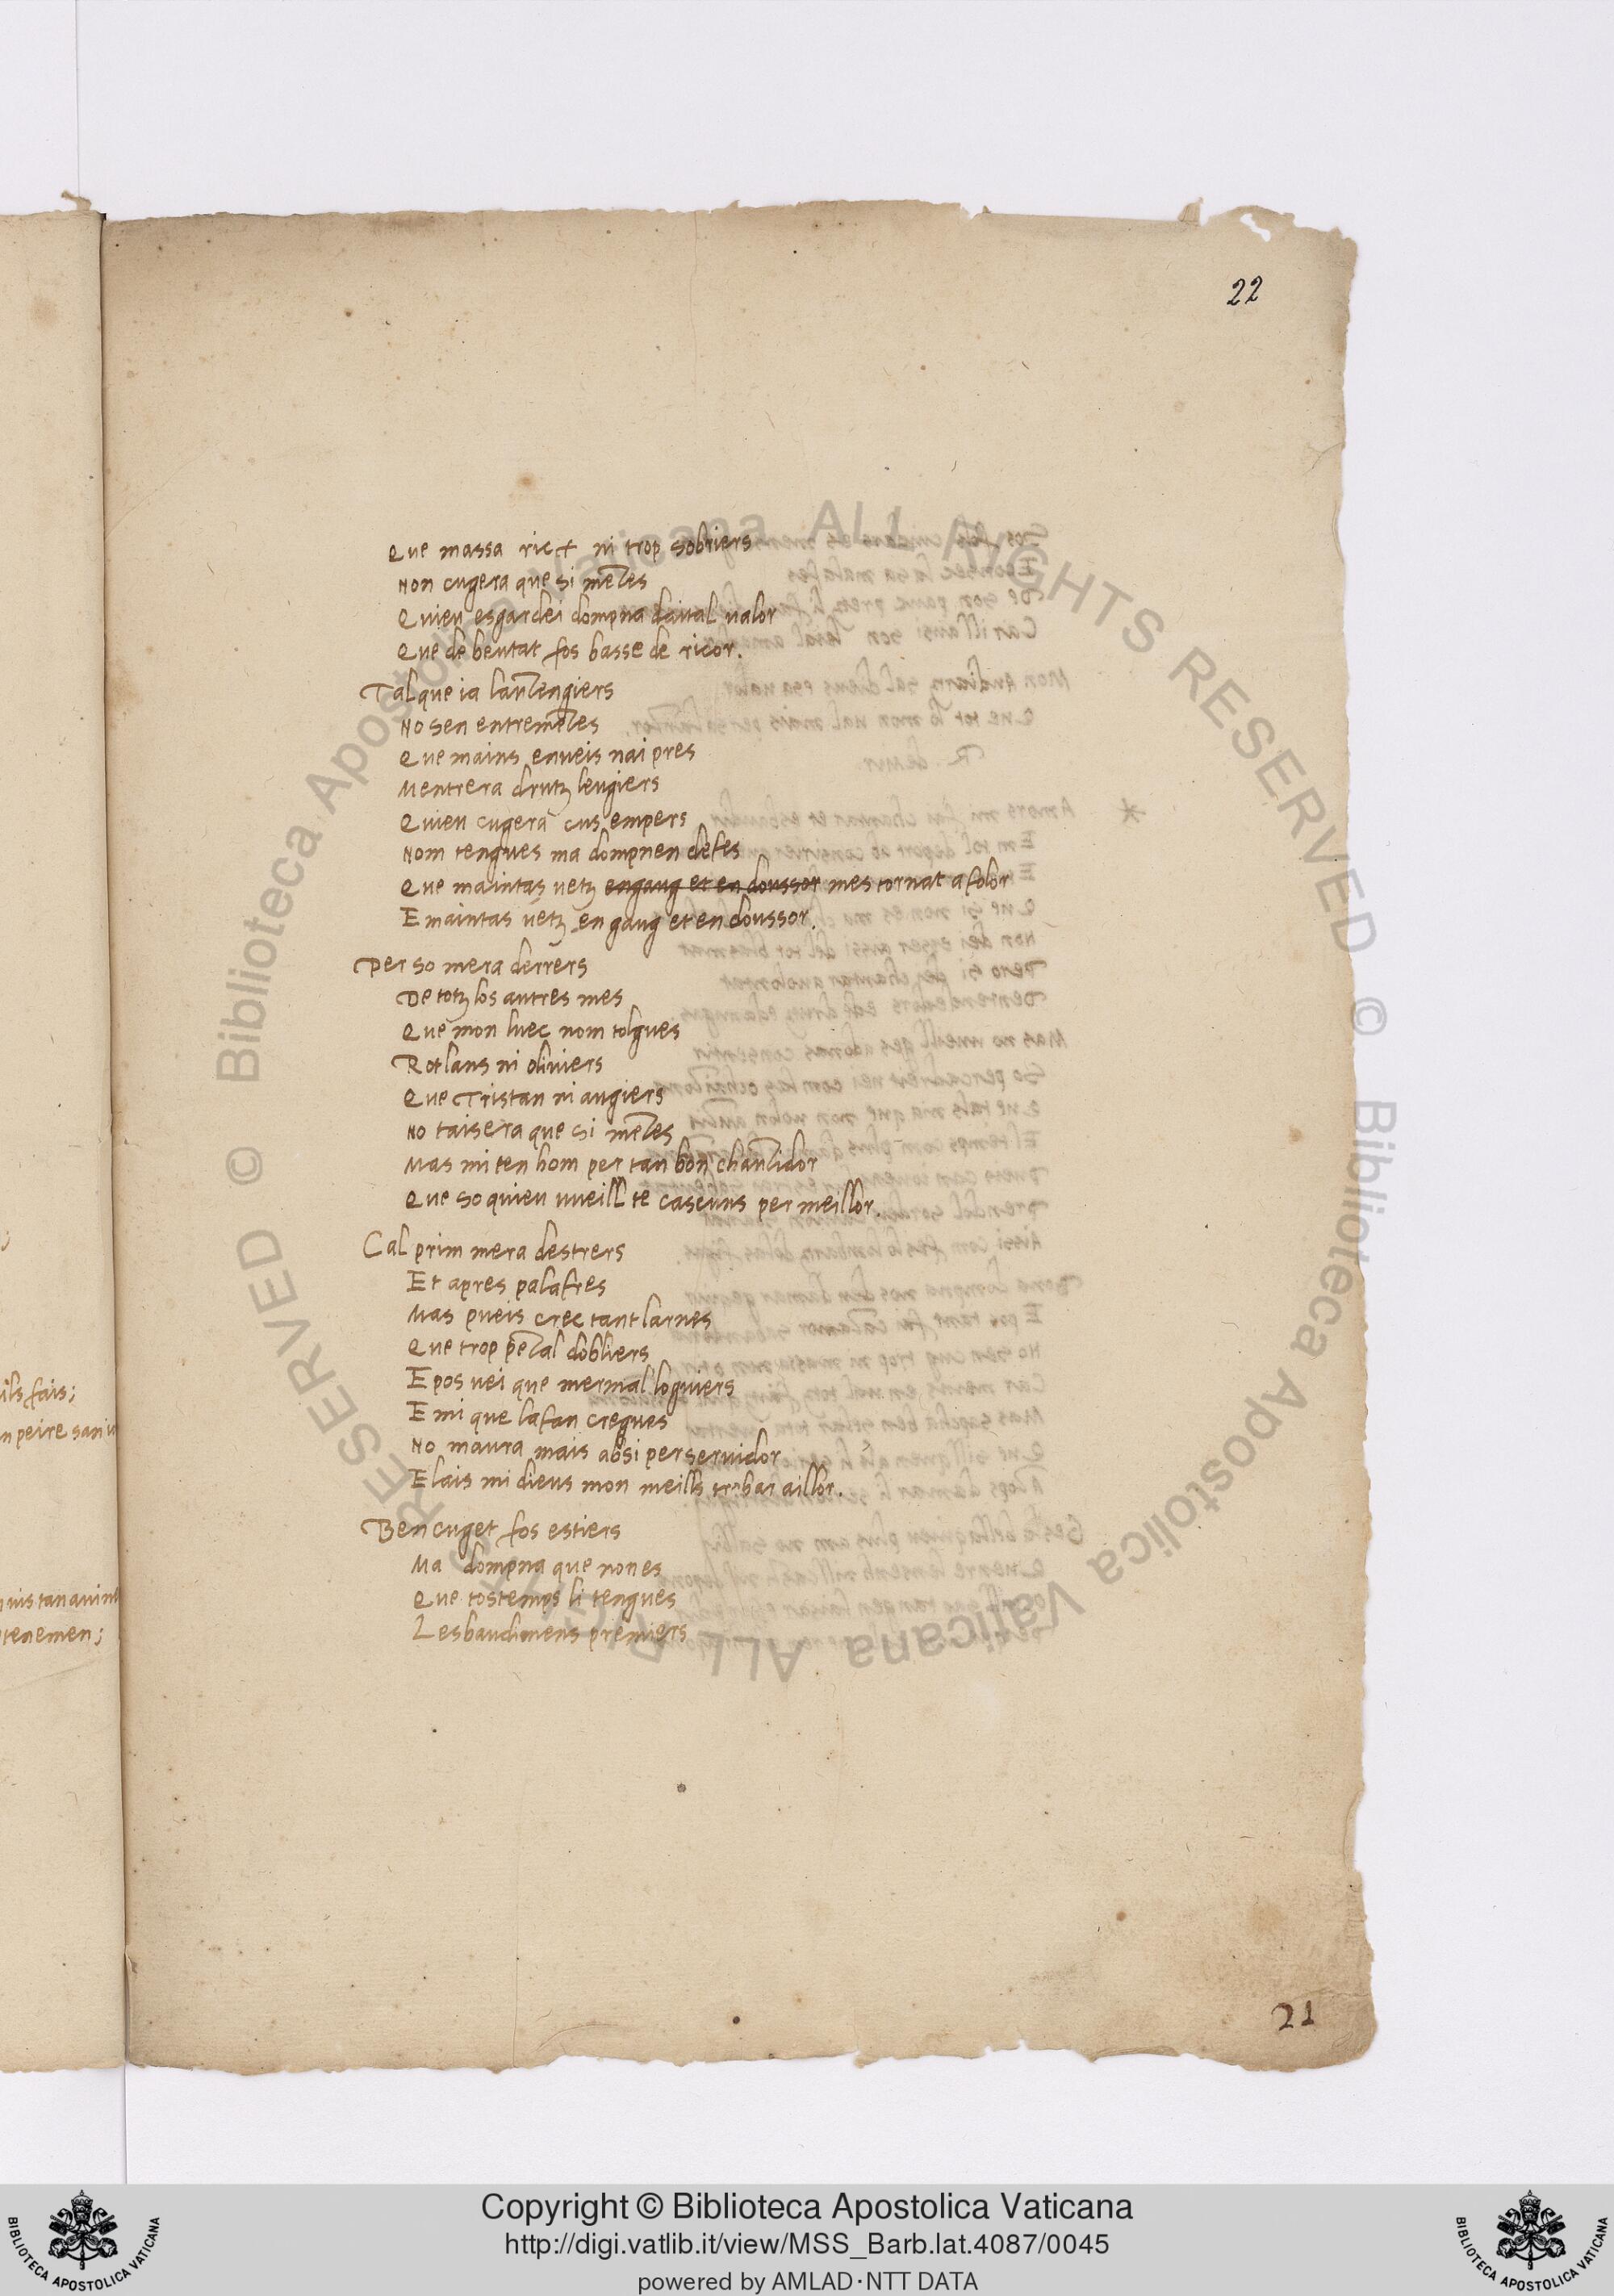 22
Que massa rict ni trop sobriers
Non cugera que si metes
Quieu esgardei dompna daital valor
Que de beutat fos basse de ricor.
Tal que ia lautengiers
No sen entremetes
Que mains enueis nai pres
Mentrera drutz leugiers
Quieu cugera cus empers
Nom tengues ma dompnen defes
Que maintas vetz engaug et en doussor mes tornat a folor
E maintas vetz en gaug et en doussor.
Per so mera derrers
De totz los autres mes
Que mon luec nom tolgues
Rotlans ni oliviers
Que Tristan ni augiers
No taisera que si metes
Mas mi ten hom per tan bon chautidor
Que so quieu vueill te cascuns per meillor.
Cal prim mera destrers
Et apres palafres
Mas pueis crec tant larnes
Que trop petal dobliers
E pos vei que mermal loguiers
E mi que lafan cregues
No maura mais absi per servidor
E lais mi dieus mon meills trobar aillor.
Ben cuget fos estiers
Ma dompna que non es
Que tostemps li tengues
Lesbaudimens premiers
21
ils fais;
n peire san
tenemen;
© Biblioteca Apostolica Vaticana ALL RIGHTS RESERVED © Biblioteca Apostolica Vaticana ALL RIGHTS RESERVED
Copyright © Biblioteca Apostolica Vaticana
http://digi.vatlib.it/view/MSS_Barb.lat.4087/0045
powered by AMLAD·NTT DATA
BIBLIOTECA APOSTOLICA VATICANA
BIBLIOTECA APOSTOLICA VATICANA